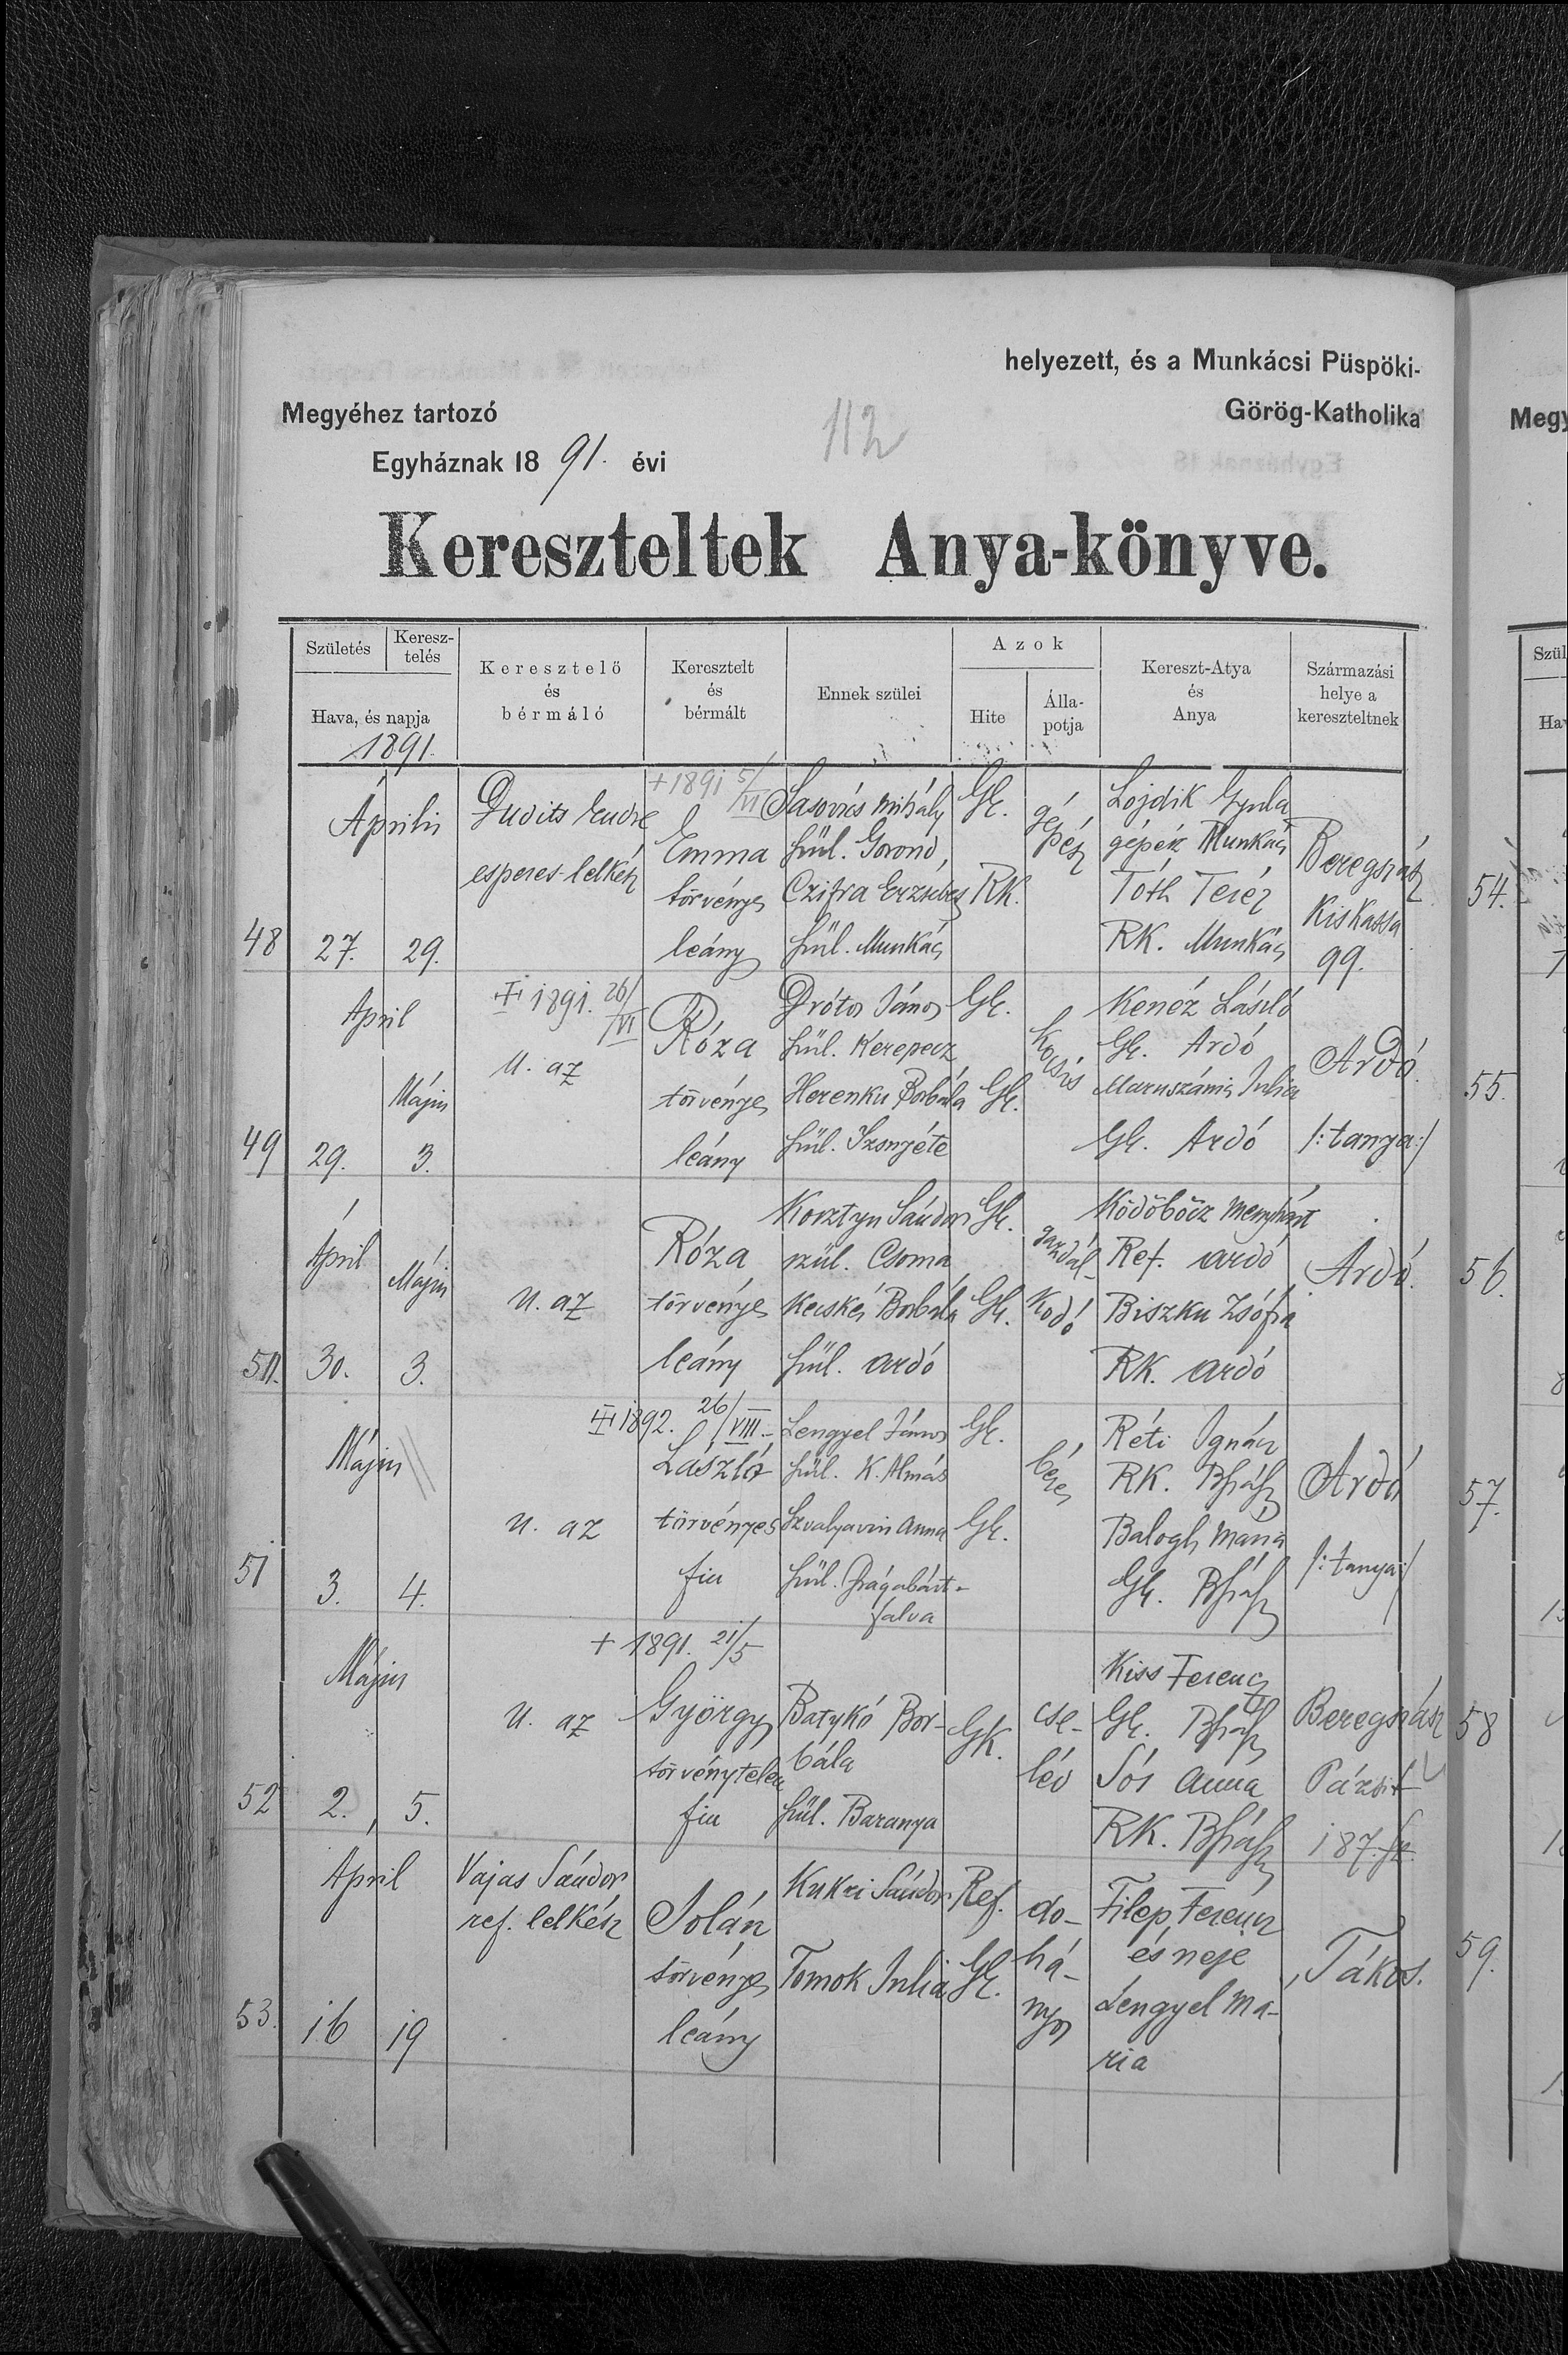 helyezett, és a Munkácsi Püspöki-
Megyéhez tartozó
Görög-Katholika
112
Egyháznak 1891. évi
Kereszteltek Anya-könyve.
Születés
Keresz-
telés
Hava, és napja
1891.
Keresztelő
és
bérmáló
Keresztelt
és
bérmált
Ennek szülei
Azok
Hite
Álla-
potja
Kereszt-Atya
és
Anya
Származási
helye a
kereszteltnek
48
Április
27. 29.
Dudits Endre
esperes-lelkész
+ 1891 5/VI
Emma
törvényes
leány
Sasovics Mihály
szül. Gorond,
Czifra Erzsébet
szül. Munkács
Gk.
RK.
gé-
pész
Lojdik Gyula
gépész Munkács
Tóth Teréz
RK. Munkács
Beregszász
Kiskassa
99.
49
April
Május
29. 3.
1891. 26/VI
U. az
Róza
törvényes
leány
Drótos János
szül. Kerepecz
Herenku Borbála
szül. Izsnyéte
Gk.
Gk.
kocsis
Kenéz László
Gk. Ardó
Julia
Gk. Ardó
Ardó
/:tanya:/
50.
April
Május
30. 3.
U. az
Róza
törvényes
leány
Kosztyu Sándor
szül. Csoma
Kecskés Borbála
szül. Ardó
Gk.
Gk.
gazdál-
kodó
Ködöböcz Menyhárt
Ref. Ardó
Biszku Zsófia
RK. Ardó
Ardó.
51
Május
3. 4.
U. az
1892. 26/VIII.
László
törvényes
fiu
Lengyel János
szül. K. Almás
Szvalyavin Anna
szül. Drágabárt-
falva
Gk.
Gk.
béres
Réti Ignác
RK. Bszász
Balogh Mária
Gk. Bszász
Ardó
/:tanya:/
52
Május
2. 5.
U. az
+ 1891. 21/5
György
törvénytelen
fiu
Batykó Bor-
bála
szül. Baranya
GK.
cse-
léd
Kiss Ferencz
Gk. Bszász
Sós Anna
RK. Bszász
Beregszász
Pázsit
187.
53.
April
16 19
Vajas Sándor
ref. lelkész
Jolán
törvényes
leány
Kukri Sándor
Tomok Julia
Ref.
Gk.
do-
há-
nyos
Filep Ferencz
és neje
Lengyel Ma-
ria
Tákos.
Megy
Szül
Ha
54.
55.
56.
57.
58
59.